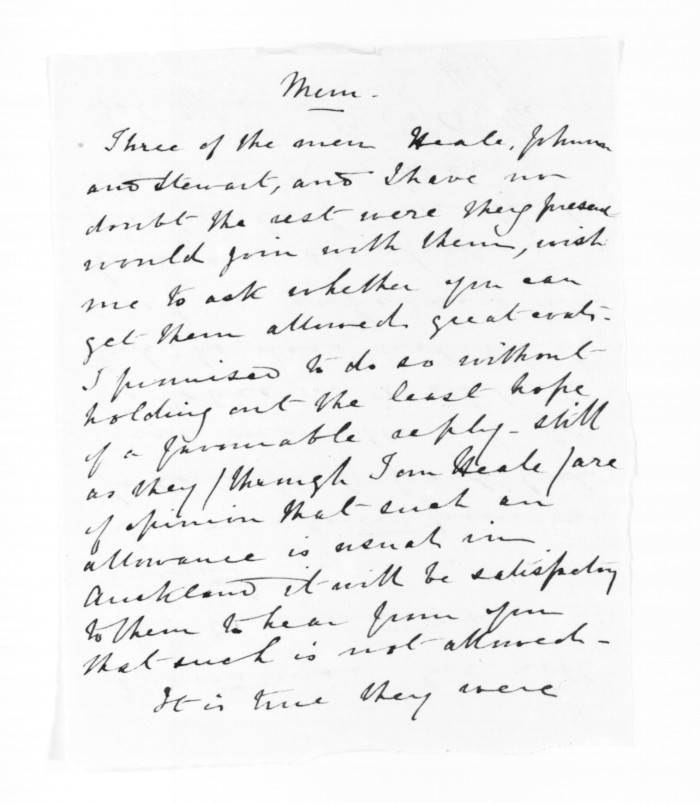 Mem -
Three of the men Heale, Johnson
and Stewart, and I have no
doubt the rest were they present
would join with them, wish
me to ask whether you can
get them allowed great coats -
I promised to do so without
holding out the least hope
of a favourable reply - still
as they / through Tom Heale / are
of opinion that such an
allowance is usual in
Auckland it will be satisfactory
to them to hear from you
that such is not allowed -
It is true they were